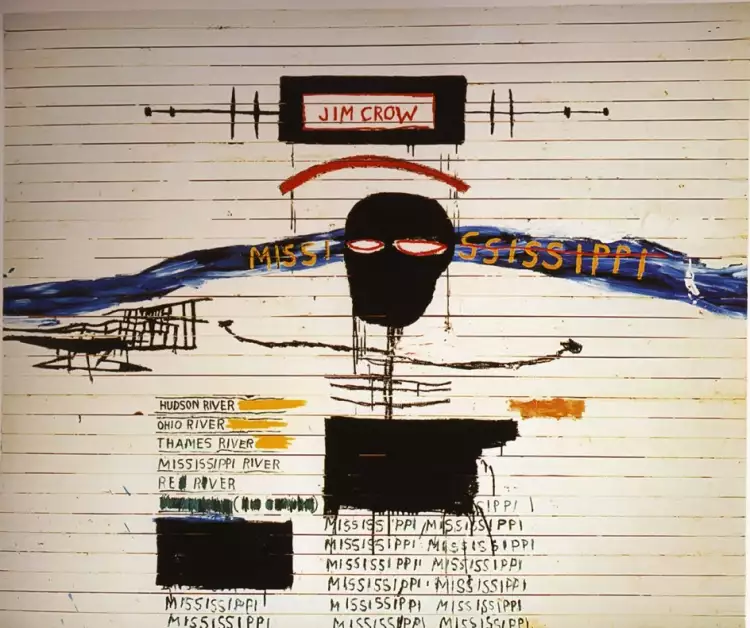 JIM CROW
MISSISSIPPI
HUDSON RIVER
OHIO RIVER
THAMES RIVER
MISSISSIPPI RIVER
RED RIVER
SIPPI
MISSISSIPPI MISSISSIPPI
MISSISSIPPI MISSISSIPPI
MISSISSIPPI MISSISSIPPI
MISSISSIPPI MISSISSIPPI
MISSISSIPPI MISSISSIPPI MISSISSIPPI
MISSISSIPPI MISSISSIPPI MISSISSIPPI